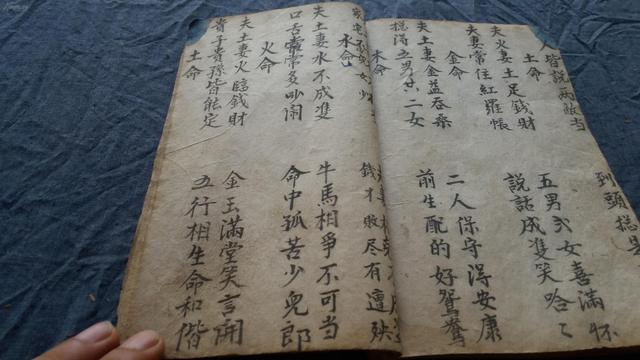 人皆說兩敵当　到頭捴是
土命
夫火妻土足錢財　五男弍女喜滿怀
夫妻常住紅羅帳　說話成雙笑哈〻
金命
夫土妻金益吞桑　二人保守得安康
捴得五男共二女　前生配的好鴛鴦
木命
錢才败尽有遭殃
水命
夫土妻水不成雙　牛馬相爭不可当
口舌常常多吵闹　命中孤苦少兒郎
火命
夫土妻火臨錢財　金玉滿堂笑言開
貴子貴孫皆能定　五行相生命和偕
土命